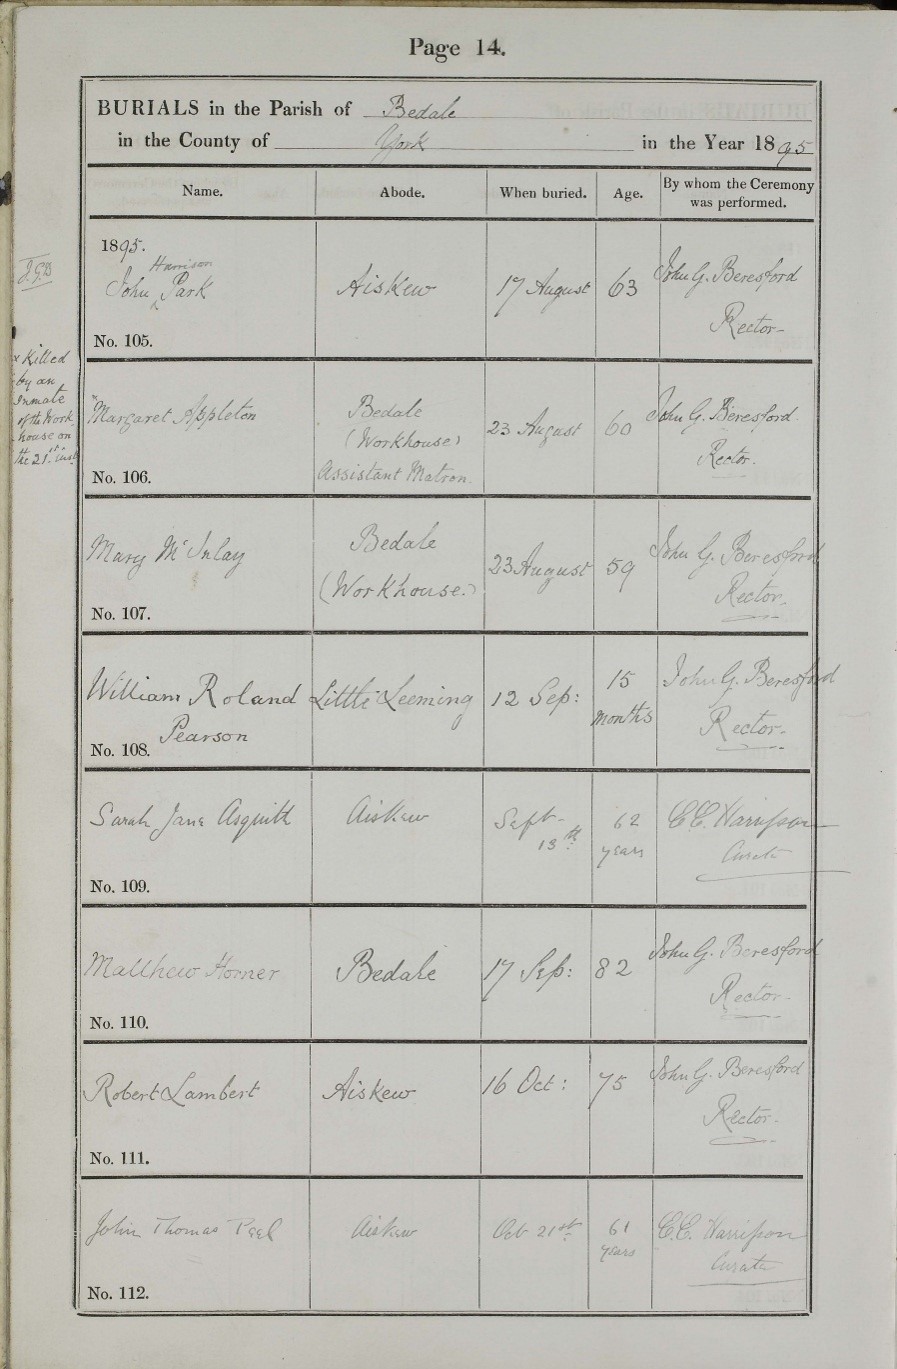 Page 14.
BURIALS in the Parish of Bedale
in the County of York in the Year 1895
Name. Abode. When buried. Age. By whom the Ceremony was performed.
1895.
J.G.B
Harrison
John ^ Park Aiskew 17 August 63 John G. Beresford
Rector-
No. 105.
x Killed
by an
Inmate
of the Work
house on
the 21st inst
x Margaret Appleton Bedale 23 August 60 John G. Beresford
(Workhouse) Rector.
Assistant Matron.
No. 106.
Mary McInlay Bedale 23 August 59 John G. Beresford
(Workhouse.) Rector.
No. 107.
William Roland Little Leeming 12 Sep: 15 John G. Beresford
Pearson months Rector-
No. 108.
Sarah Jane Asquith Aiskew Sept- 62 C.C. Harrisson
13th years Curate
No. 109.
Matthew Horner Bedale 17 Sep: 82 John G. Beresford
Rector-
No. 110.
Robert Lambert Aiskew 16 Oct: 75 John G. Beresford
Rector-
No. 111.
John Thomas Peel Aiskew Oct 21st 61 C.C. Harrisson
years Curate
No. 112.